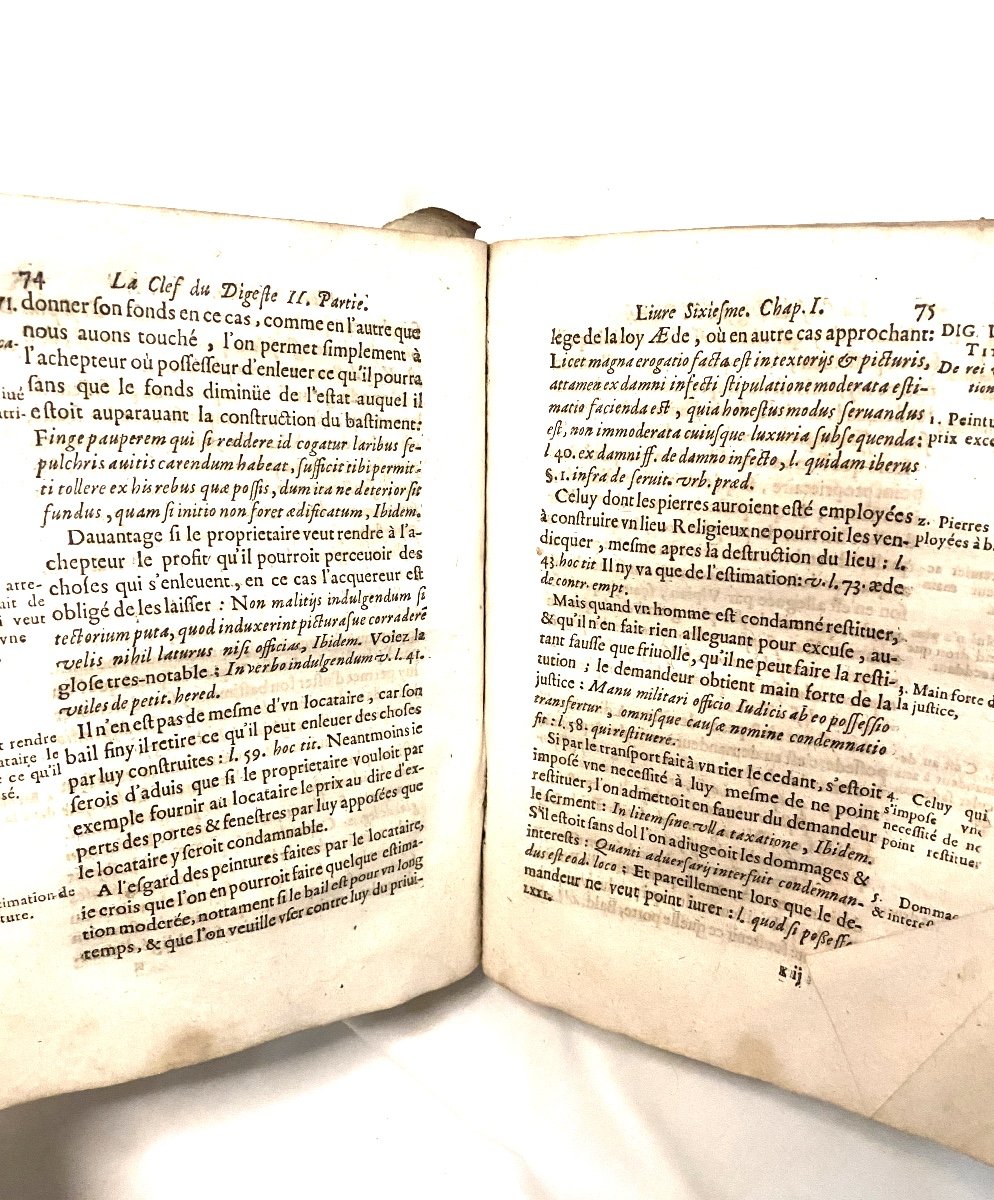 74 La Clef du Digeste II. Partie.
donner ſon fonds en ce cas, comme en l'autre que
nous auons touché, l'on permet ſimplement à
l'achepteur où poſſeſſeur d'enleuer ce qu'il pourra
ſans que le fonds diminüe de l'eſtat auquel il
eſtoit auparauant la conſtruction du baſtiment:
Finge pauperem qui ſi reddere id cogatur laribus ſe-
pulchris auitis carendum habeat, ſufficit tibi permit-
ti tollere ex his rebus quæ poſſis, dum ita ne deterior ſit
fundus, quam ſi initio non foret ædificatum, Ibidem.
Dauantage ſi le proprietaire veut rendre à l'a-
chepteur le profit qu'il pourroit perceuoir des
choſes qui s'enleuent, en ce cas l'acquereur eſt
obligé de les laiſſer: Non malitijs indulgendum ſi
tectorium puta, quod induxerint picturaſue corradere
velis nihil laturus niſi officias, Ibidem. Voiez la
gloſe tres-notable: In verbo indulgendum v. l. 41.
vtiles de petit. hered.
Il n'en eſt pas de meſme d'vn locataire, car ſon
bail finy il retire ce qu'il peut enleuer des choſes
par luy conſtruites: l. 59. hoc tit. Neantmoins ie
ſerois d'aduis que ſi le proprietaire vouloit par
exemple fournir au locataire le prix au dire d'ex-
perts des portes & feneſtres par luy appoſées que
le locataire y ſeroit condamnable.
A l'eſgard des peintures faites par le locataire,
ie crois que l'on en pourroit faire quelque eſtima-
tion moderée, nottament ſi le bail eſt pour vn long
temps, & que l'on veuille vſer contre luy du priui-
71.
ca-
iué
tri-
arre-
ait de
veut
vne
rendre
ataire le
ce qu'il
sé.
timation de
ture.
Liure Sixieſme. Chap. I. 75
lege de la loy Æde, où en autre cas approchant:
Licet magna erogatio facta eſt in textorijs & picturis,
attamen ex damni infecti ſtipulatione moderata eſti-
matio facienda eſt, quia honeſtus modus ſeruandus
eſt, non immoderata cuiuſque luxuria ſubſequenda:
l 40. ex damni ff. de damno infecto, l. quidam iberus
§. 1. infra de ſeruit. vrb. præd.
Celuy dont les pierres auroient eſté employées
à conſtruire vn lieu Religieux ne pourroit les ven-
dicquer, meſme apres la deſtruction du lieu: l.
43. hoc tit Il ny va que de l'eſtimation: v. l. 73. æde
de contr. empt.
Mais quand vn homme eſt condamné reſtituer,
& qu'il n'en fait rien alleguant pour excuſe, au-
tant fauſſe que friuolle, qu'il ne peut faire la reſti-
tution; le demandeur obtient main forte de la
juſtice: Manu militari officio Iudicis ab eo poſſeſſio
transfertur, omniſque cauſæ nomine condemnatio
fit: l. 58. qui reſtituere.
Si par le tranſport fait à vn tier le cedant, s'eſtoit
impoſé vne neceſſité à luy meſme de ne point
reſtituer, l'on admettoit en faueur du demandeur
le ſerment: In litem ſine vlla taxatione, Ibidem.
S'il eſtoit ſans dol l'on adiugeoit les dommages &
intereſts: Quanti aduerſarij interfuit condemnan-
dus eſt eod. loco: Et pareillement lors que le de-
mandeur ne veut point iurer: l. quod ſi poſſeſſ-
LXXI.
K ij
DIG.
De rei
tion
1. Peintu
prix exce
2. Pierres
ployées à b
3. Main forte d
la juſtice,
4. Celuy qui
s'impoſe vne
neceſſité de ne
point reſtituer
5. Domma
& intereſ